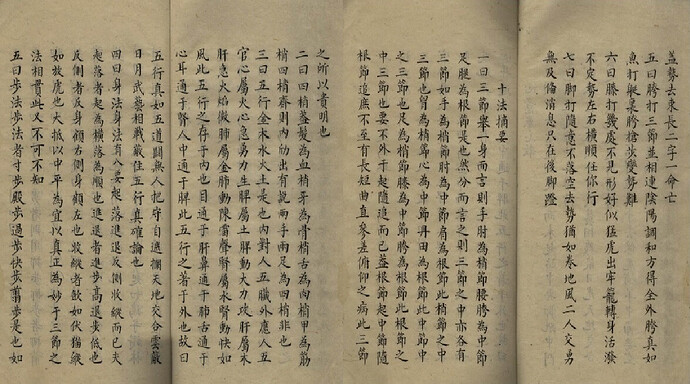 蓋勢去來長二字一命亡
五曰膀打三節並相連陰陽調和方得全外膀真如
魚打艇束膀搶步變勢難
六曰膝打幾處不見形好似猛虎出牢籠轉身活潑
不定勢左右橫順任你行
七曰脚打隨意不落空去勢猶如卷地風二人交勇
無及倫消息只在後脚蹬
十法摘要
一曰三節舉一身而言則手肘為梢節腰胯為中節
足腿為根節是也然分而言之則三節之中亦各有
三節也手為梢節肘為中節肩為根節此梢節之中
三節也胸為梢節心為中節丹田為根節此中節中
之三節也足為梢節膝為中節胯為根節此根節之
中三節也要不外乎起隨追而已蓋梢節起中節隨
根節追庶不至有長短曲直參差俯仰之病此三節
之所以貴明也
二曰四梢蓋髮為血梢牙為骨梢舌為肉梢甲為筋
梢四梢齊則內劲出有說兩手兩足為四梢非也
三曰五行金木水火土是也內對人五臟外應人五
官心屬火心急勇力生脾屬土脾動大力攻肝屬木
肝急火焰微肺屬金肺動陳雷聲腎屬水腎動快如
風此五行之存于內也目通于肝鼻通于肺舌通于
心耳通于腎人中通于脾此五行之著于外也故曰
五行真如五道關無人把守自遮攔天地交合雲蔽
日月武藝相戰蔽住五行真確論也
四曰身法身法有八要起落進退反側收縱而已夫
起落者起為橫落為順也進退者進步高退步低也
反側者反身顧右側身顧左也收縱者如伏猫縱
如放虎也大抵以中平為宜以真正為妙于三節之
法相貫此又不可不知
五曰步法步法者寸步殿步過步快步剪步是也如